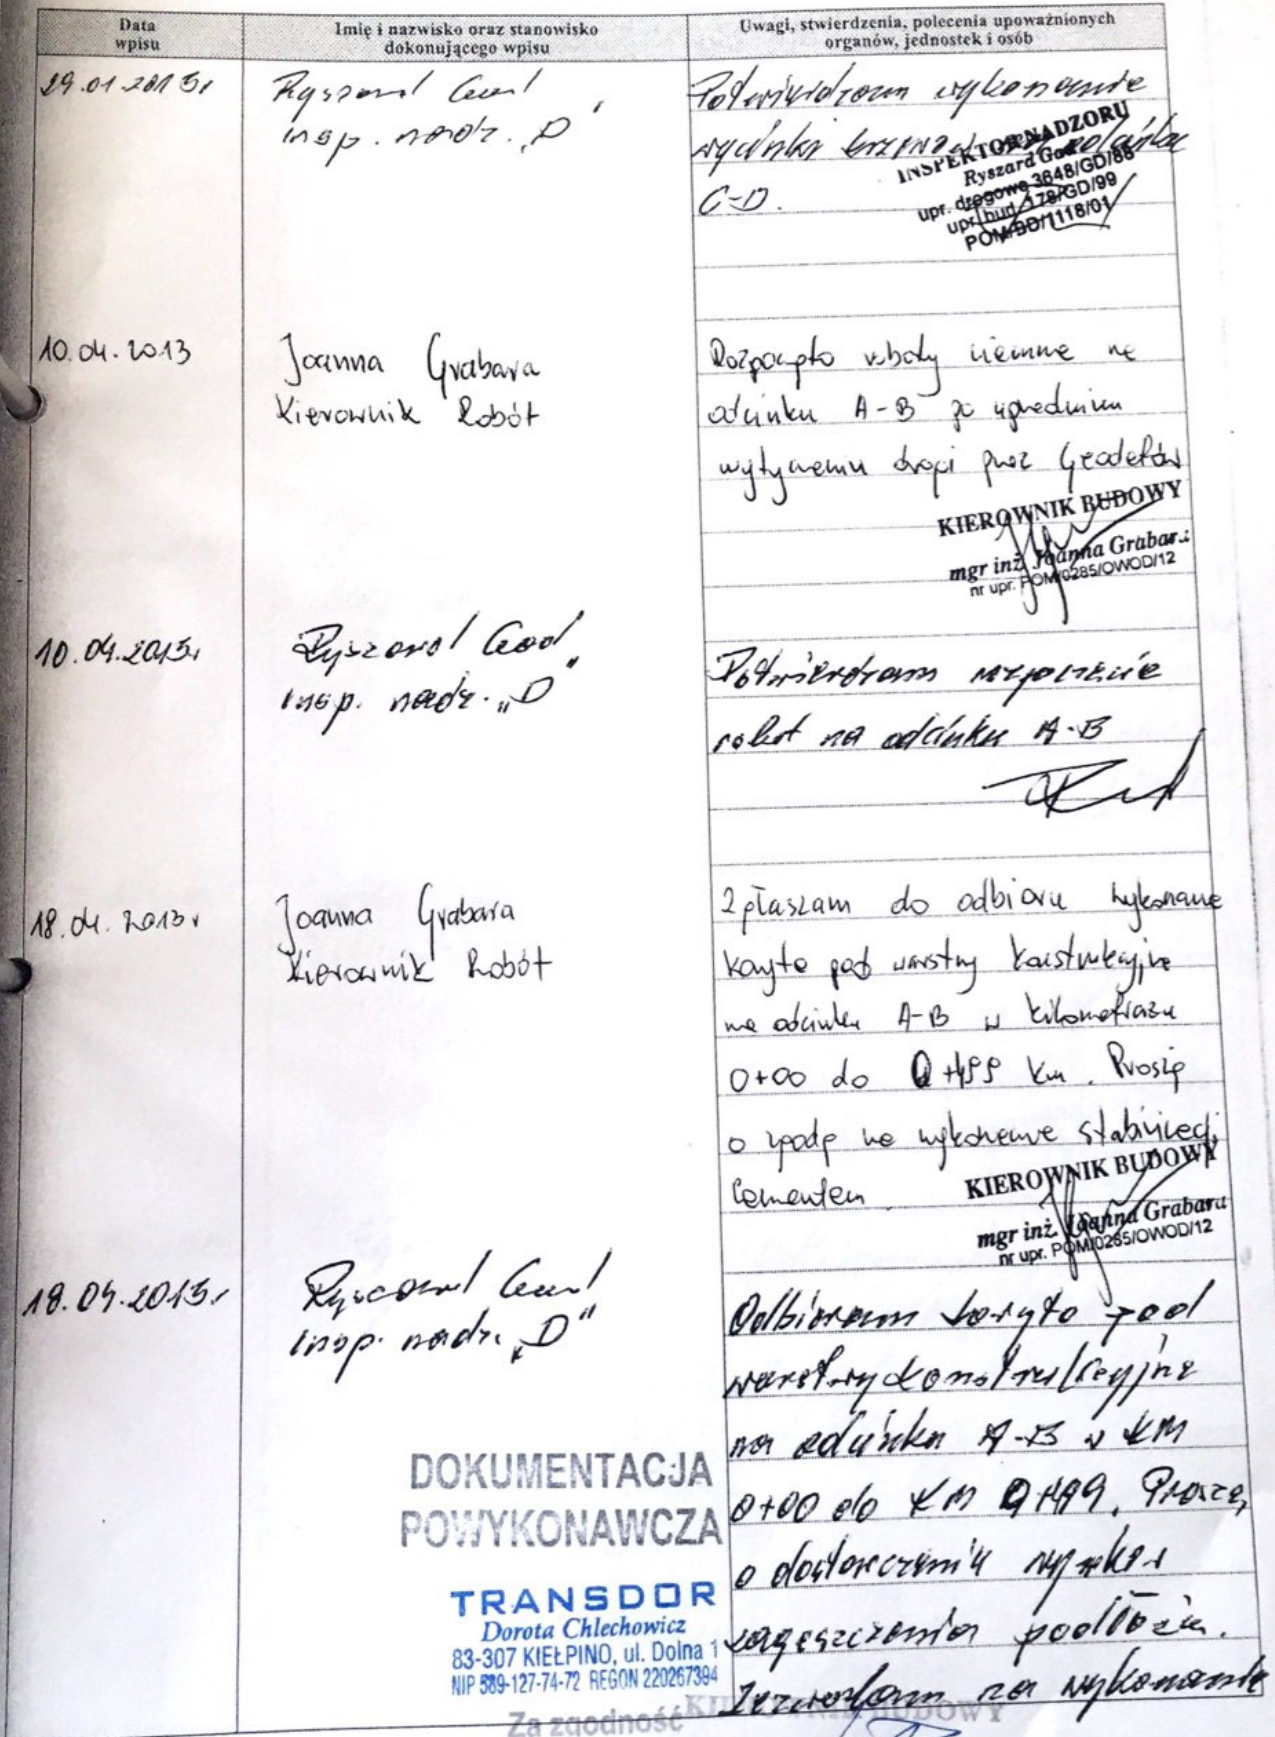 Data
wpisu
Imię i nazwisko oraz stanowisko
dokonującego wpisu
Uwagi, stwierdzenia, polecenia upoważnionych
organów, jednostek i osób
29.01.2013r
Ryszard Gad
insp. nadz. „D"
Potwierdzam wykonanie
wycinki odcinku
C-D.
INSPEKTOR NADZORU
Ryszard Gad
upr. drogowe 3648/GD/88
upr. bud. 178/GD/99
POM/BD/1118/01
10.04.2013
Joanna Grabara
Kierownik Robót
Rozpoczęto roboty ziemne na
odcinku A-B po uprzednim
wytyczeniu drogi przez Geodetów
KIEROWNIK BUDOWY
mgr inż. Joanna Grabara
nr upr. POM/0285/OWOD/12
10.04.2013r
Ryszard Gad
insp. nadz. „D"
Potwierdzam rozpoczęcie
robot na odcinku A-B
18.04.2013r
Joanna Grabara
Kierownik Robót
Zgłaszam do odbioru wykonane
koryto pod warstwy konstrukcyjne
na odcinku A-B w kilometrażu
0+00 do 0+499 km. Proszę
o zgodę na wykonanie stabilizacji
cementem
KIEROWNIK BUDOWY
mgr inż. Joanna Grabara
nr upr. POM/0285/OWOD/12
18.04.2013r
Ryszard Gad
insp. nadz. „D"
Odbieram koryto pod
warstwy konstrukcyjne
na odcinku A-B w KM
0+00 do KM 0+499. Proszę
o dostarczenie
zagęszczenia podłoża.
Zezwalam na wykonanie
DOKUMENTACJA
POWYKONAWCZA
TRANSDOR
Dorota Chlechowicz
83-307 KIEŁPINO, ul. Dolna 1
NIP 589-127-74-72 REGON 220267394
Za zgodność
KIEROWNIK BUDOWY